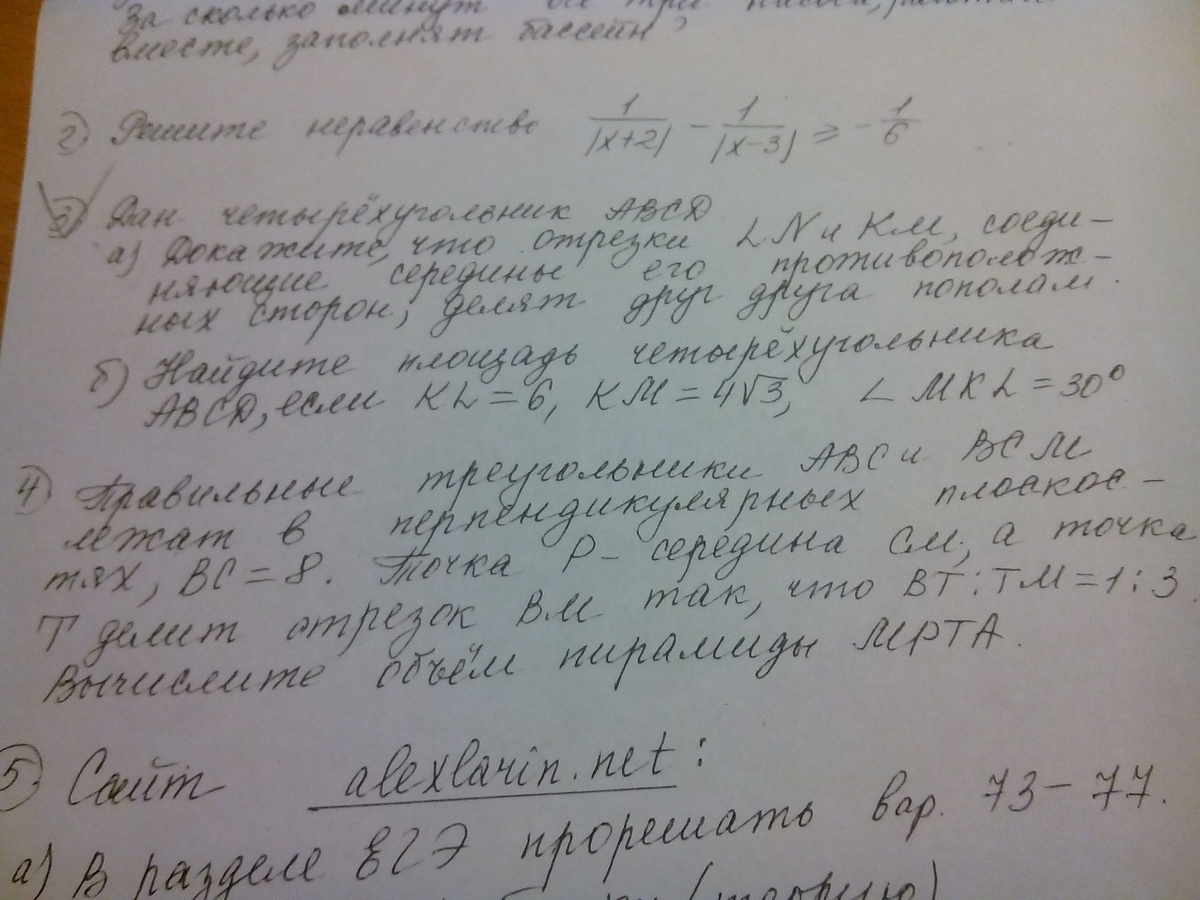 За сколько минут все три насоса, работая
вместе, заполнят бассейн?
2) Решите неравенство 1/|x+2| - 1/|x-3| ⩾ -1/6
3) Дан четырёхугольник ABCD
а) Докажите, что отрезки LN и KM, соеди-
няющие середины его противополож-
ных сторон, делят друг друга пополам.
б) Найдите площадь четырёхугольника
ABCD, если KL = 6, KM = 4√3, ∠ MKL = 30°
4) Правильные треугольники ABC и BCM
лежат в перпендикулярных плоскос-
тях, BC = 8. Точка P - середина CM, а точка
T делит отрезок BM так, что BT : TM = 1 : 3.
Вычислите объём пирамиды MPTA.
5) Сайт alexlarin.net :
а) В разделе ЕГЭ прорешать вар. 73 - 77.
(теорию)